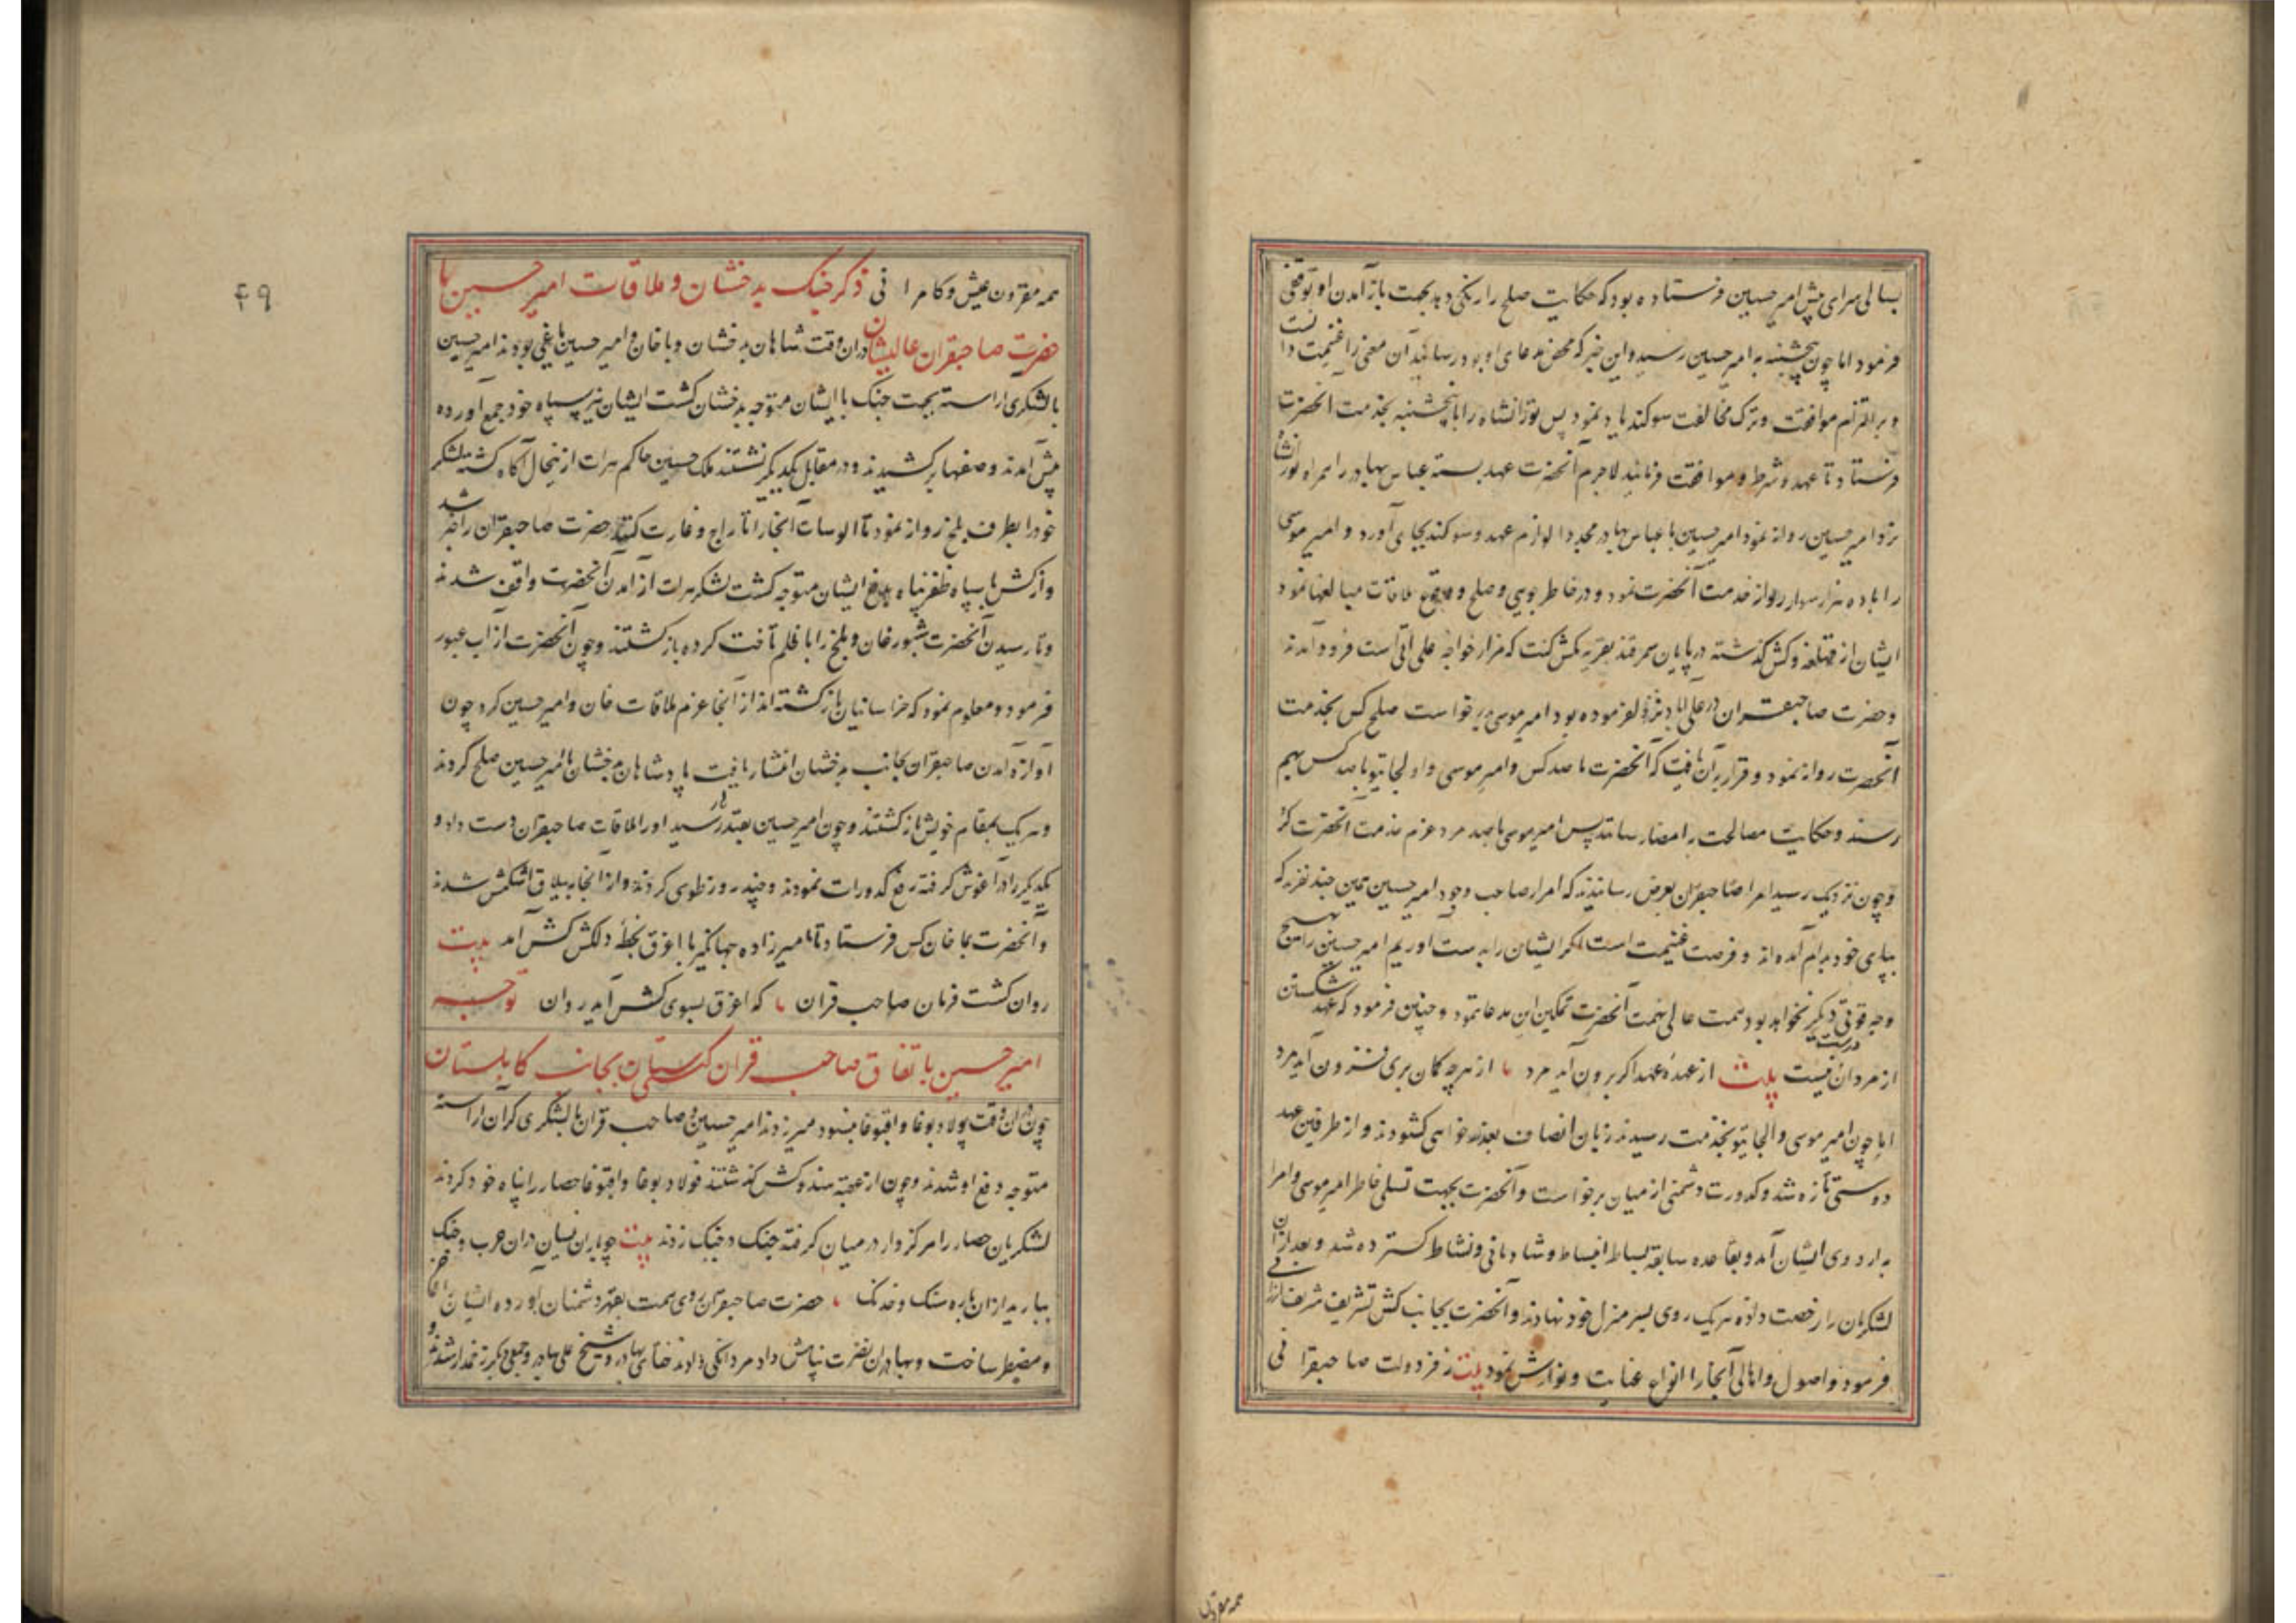 بسالی سرای پیش امیر حسین فرستاده بود که حکایت صلح را رنکی دهد بجهت باز آمدن او توقفی
فرمود اما چون پنجشنبه به امیر حسین رسید و این خبر که محض مدعای او بود رسانید آن معنی را غنیمت دانست
و بر التزام موافقت و ترک مخالفت سوکند یاد نمود پس تورانشاه را با پنجشنبه بخدمت آنحضرت
فرستاد تا عهد و شرط و موافقت فرمایند لاجرم آنحضرت عهد بسته عباس بهادر را همراه تورانشاه
نزد امیر حسین روانه نمود امیر حسین با عباس بهادر مجددا لوازم عهد و سوکند بجای آورد و امیر موسی
را با ده هزار سوار روانه خدمت آنحضرت نمود و در خاطر جویی و صلح و وقوع ملاقات مبالغها نمود
ایشان از قهلغه و کش گذشته در پایان سمرقند بقریه که مزار خواجه علی اتی است فرود آمدند
و حضرت صاحبقران در علی اباد نزول فرموده بود امیر موسی برخواست صلح کس بخدمت
آنحضرت روانه نمود و قرار بر آن یافت که آنحضرت با صد کس و امیر موسی و اولجایتو با صد کس بهم
رسند و حکایت مصالحت را امضا رسانند پس امیر موسی با صد مرد عزم خدمت آنحضرت کرد
و چون نزدیک رسید امرا صاحبقران بعرض رسانیدند که امرا صاحب وجود امیر حسین همین چند نفرند که
بپای خود بدام آمده اند و فرصت غنیمت است اکر ایشان را بدست اوریم امیر حسین را هیچ
وجه قوتی دیکر نخواهد بود همت عالی نهمت آنحضرت تمکین این مدعا ننمود و چنین فرمود که عهد شکستن
از مردان درست نیست بیت از عهده عهد اکر برون آید مرد ۰ از هر چه کمان بری فزون آید مرد
اما چون امیر موسی و الجایتو بخدمت رسیدند زبان انصاف بعذر خواهی کشودند و از طرفین عهد
دوستی تازه شد و کدورت دشمنی از میان برخواست و آنحضرت بجهت تسلی خاطر امیر موسی و امرا
به اردوی ایشان آمد و بقاعده سابقه بساط انبساط و شادمانی و نشاط کسترده شد و بعد از آن
لشکریان را رخصت داده هر یک روی بسر منزل خود نهادند و آنحضرت بجانب کش تشریف شریف ارزانی
فرمود و اصول و اهالی آنجا را انواع عنایت و نوازش نمود بیت ز فر دولت صاحبقرانی
همه مقرون
۴۹
همه مقرون بعیش و کامرانی ذکر جنک بدخشان و ملاقات امیر حسین با
حضرت صاحبقران عالیشان در ان وقت شاهان بدخشان و با خان و امیر حسین یاغی بودند امیر حسین
با لشکری اراسته بجهت جنک با ایشان متوجه بدخشان کشت ایشان نیز سپاه خود جمع آورده
پیش آمدند و صفها بر کشیدند و در مقابل یکدیکر نشستند ملک حسین حاکم هرات از ینحال آکاه کشته لشکر
خود را بطرف بلخ روانه نمود تا الوسات آنجا را تاراج و غارت کنند حضرت صاحبقران را خبر شد
و از کش با سپاه ظفر پناه بدفع ایشان متوجه کشت لشکر هرات از آمدن آنحضرت واقف شدند
و تا رسیدن آنحضرت شبورغان و بلخ را تا خلم تاخت کرده باز کشتند و چون آنحضرت از اب عبور
فرمود و معلوم نمود که خراسانیان باز کشته اند از آنجا عزم ملاقات خان و امیر حسین کرد چون
آوازه آمدن صاحبقران بجانب بدخشان انتشار یافت پادشاهان بدخشان با امیر حسین صلح کردند
و هر یک بمقام خویش باز کشتند و چون امیر حسین بقندز رسید او را ملاقات صاحبقران دست داد و
یکدیکر را در آغوش کرفته رفع کدورات نمودند و چند روز طوی کردند و از آنجا به ییلاق اشکمش شدند
و آنحضرت بماخان کس فرستاد تا امیرزاده جهانکیر با اغرق بخطه دلکش کش آمد بیت
روان کشت فرمان صاحب قران ۰ که اغرق بسوی کش آید روان توجه
امیر حسین باتفاق صاحب قران کیتی ستان بجانب کابلستان
چون در آن وقت پولاد بوغا و اقبوغا میزدند امیر حسین و صاحب قران با لشکری کران اراسته
متوجه دفع او شدند و چون از عقبه هندو کش گذشتند فولاد بوغا و اقبوغا حصار را پناه خود کردند
لشکریان حصار را مرکز وار در میان کرفته جنک در جنک زدند بیت چو باران نیسان دران حرب و جنک
ببارید از ان باره سنک و خدنک ۰ حضرت صاحبقران روی همت بقهر دشمنان آورده ایشان را عاجز
و مضطر ساخت و بهادران نصرت نیامش داد مردانکی دادند ختای بهادر و شیخ علی بهادر و جمعی دیکر زخمدار شدند